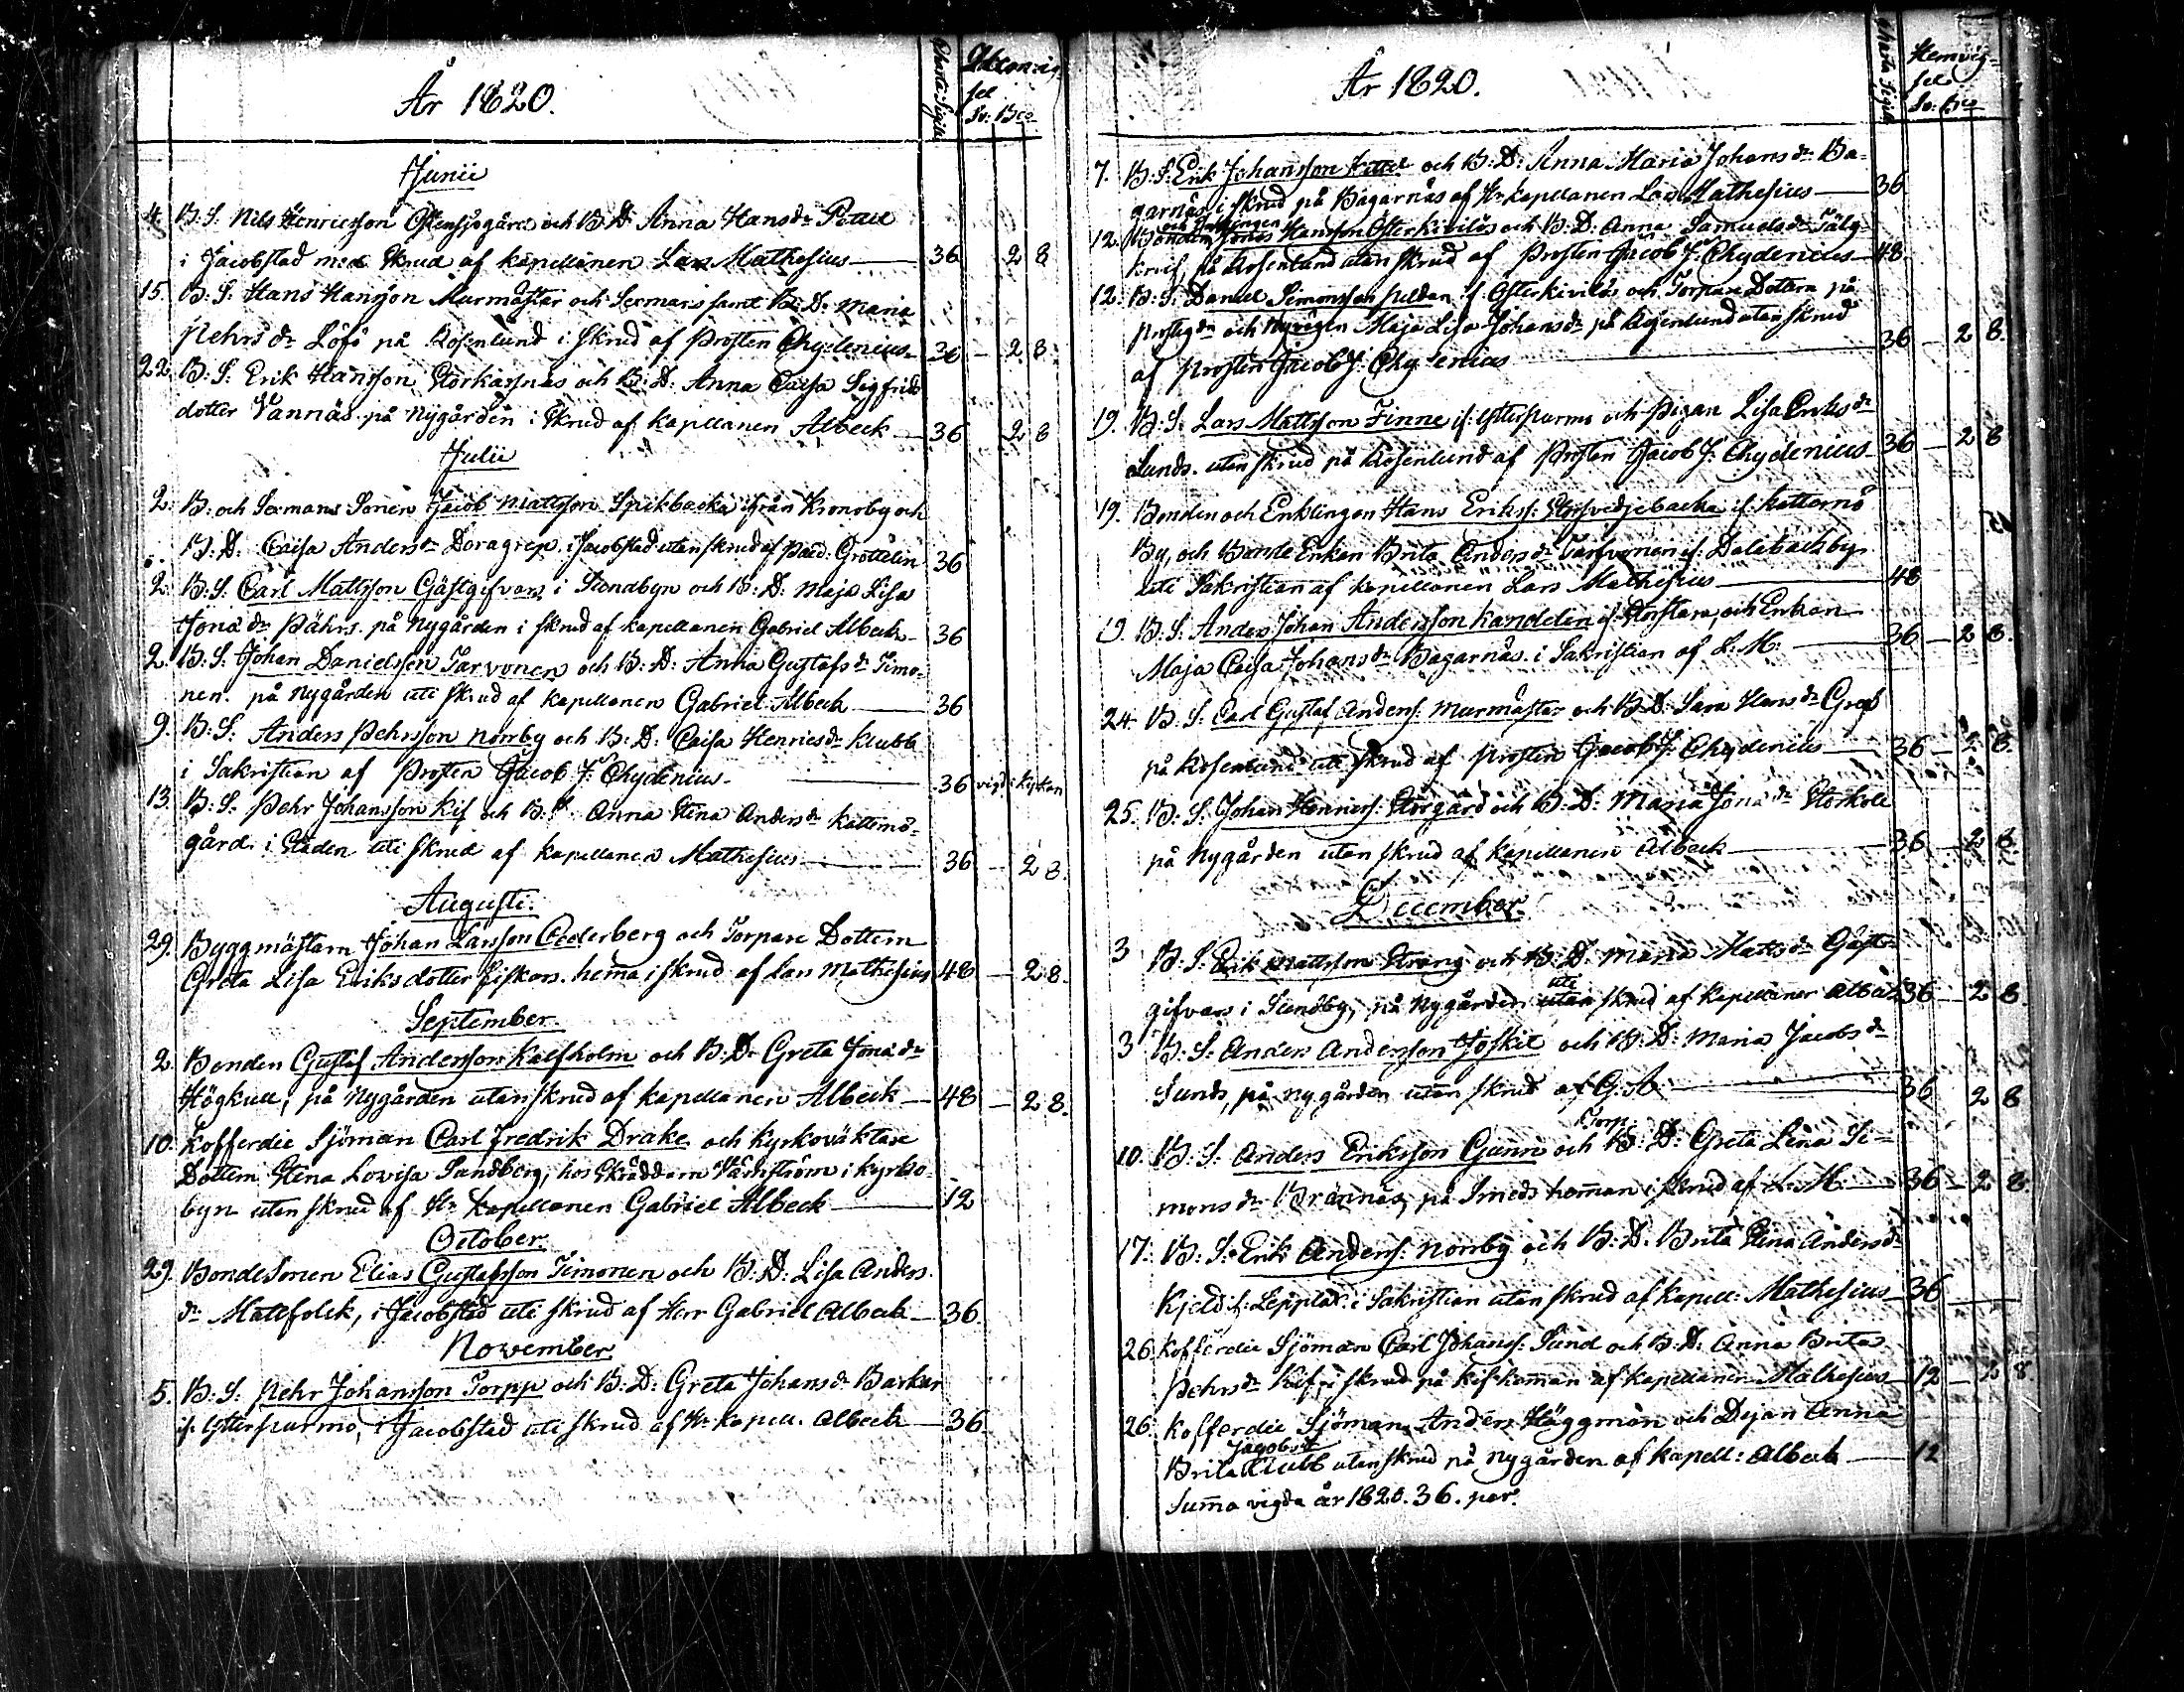 År 1820.
Charta Sigill
fel
Sv: Bco
Junii
4. B: S. Nils Henricsson Östensjögård och B: D. Anna Hans dr
i Jacobstad med skrud af kapellanen Lars Mathesius — 36 2 8
15. B: S: Hans Hansson Murmästar och Sexmans samt B: D: Maria
Pehrs dr Löfö på Rosenlund i skrud af Prosten Chydenius — 36 — 2 8.
22. B: S: Erik Hansson Storkassnäs och B: D. Anna Caisa Sigfrids
dotter Vannäs på Nygården i Skrud af Kapellanen Albeck — 36 2 8
Julii
2. B: och Sexmans Sonen Jacob Mattsson Spikbacka ifrån Kronoby och
B: D: Caisa Anders dr Doragrep i Jacobstad utan skrud af Paed: Gröttelin 36
2. B: S. Carl Mattsson Gästgifvars i Sundbyn och B: D: Maja Lisa
Jona dr Pährs på Nygården i skrud af kapellanen Gabriel Albeck — 36
2. B: S. Johan Danielsson Tarvonen och B: D: Anna Gustafs dr Timo-
nen på Nygården uti skrud af kapellanen Gabriel Albeck — 36
9. B: S: Anders Pehrsson Norrby och B: D: Caisa Henrics dr Klubb
i Sakristian af Prosten Jacob J: Chydenius — 36 vigd i kyrkan
13. B: S. Pehr Johansson Kif och B: D. Anna Stina Anders dr Kattnö-
gård i Staden uti skrud af kapellanen Mathesius — 36 — 2 8.
Augusti.
29. Byggmästarn Johan Larsson Cederberg och Torpare Dottern
Greta Lisa Eriksdotter Fiskars hema i skrud af Lars Mathesius 48 — 2 8.
September.
2. Bonden Gustaf Andersson Kalfholm och B: D: Greta Jona dr
Högkull, på Nygården utan skrud af kapellanen Albeck — 48 — 2 8.
10. Kofferdie Sjöman Carl Fredrik Drake och Kyrkoväktare
Dottern Stena Lovisa Sandberg, hos Skräddarn Vänström i kyrko-
byn utan skrud af Hr Kapellanen Gabriel Albeck — 12
October.
29. Bondesonen Elias Gustafsson Timonen och B: D: Lisa Anders
dr Matefolck, i Jacobstad uti skrud af Herr Gabriel Albeck — 36.
November.
5. B: S. Pehr Johansson Torpp och B: D: Greta Johans dr Barkar
if: Ytterpurmo, i Jacobstad uti skrud af Hr Kapell. Albeck — 36.
År 1820.
Charta Sigill
Hemvig-
sel
Sv: Bco
7. B: S. Erik Johansson och B: D: Anna Maria Johans dr Ba-
garnäs, i skrud på Bagarnäs af Hr Kapellanen Lars Mathesius — 36
och
12. Bonden Jonas Hansson Österkivilös och B: D: Anna Samuels dr Sälg-
på Rosenlund utan skrud af Prosten Jacob J: Chydenius — 48.
12. B: S: Daniel Simonsson Peldan if: Österkivilös och Torpare Dottern på
Prostgdn och Maja Lisa Johans dr på Rosenlund utan skrud
af Prosten Jacob J: Chydenius — 36 — 2 8.
19. B: S. Lars Mattsson Finne if: Ytterpurmo och Pigan Lisa Eriks dr
Lunds. utan skrud på Rosenlund af Prosten Jacob J: Chydenius — 36 — 2 8
19. Bonden och Enklingen Hans Eriks: Storsvedjebacka if: Kattnö
By, och Bonde Enkan Brita Anders dr if: Dalabacks by
uti Sakristian af kapellanen Lars Mathesius — 48
19. B: S. Anders Johan Andersson Kandelin if: och Enkan
Maja Caisa Johans dr Bagarnäs i Sakristian af L: M: — 36 — 2 8.
24. B: S: Carl Gustaf Anders: Murmästar och B: D: Sara Hans dr Grep
på Rosenlund uti skrud af Prosten Jacob J: Chydenius — 36 — 2 8.
25. B: S. Johan Henricss: Storgård och B: D: Maria Jona dr Storkole
på Nygården utan skrud af Kapellanen Albeck — 36 — 2 8.
December.
3 B: S. Erik Mattsson Strang och B: D. Maria Matts dr Gäst-
uti
gifvars i Sundby, på Nygården utan skrud af Kapellanen Albäck 36 — 2 8.
3 B: S: Anders Andersson Jöskil och B: D: Maria Jacobs dr
Sunds, på Nygården utan skrud af G: A: — 36 2 8
Torp:
10. B: S. Anders Eriksson Gunni och B: D: Greta Lena Si-
mons dr Brännäs, på Smeds heman i skrud af L: M: — 36 — 2 8.
17. B: S. Erik Anders: Norrby och B: D. Brita Stina Anders dr
Kjeld if: Lepplax i Sakristian utan skrud af Kapell: Mathesius — 36
26. Kofferdie Sjöman Carl Johans: Sund och B: D: Anna Brita
Pehrs dr Kif, i skrud på Kif heman af Kapellanen Mathesius — 12 — 2 8
26. Kofferdie Sjöman Anders Häggman och Dejan Anna
Jagobsd
Brita Klubb utan skrud på Nygården af Kapell: Albeck — 12
Suma vigda år 1820. 36. par.